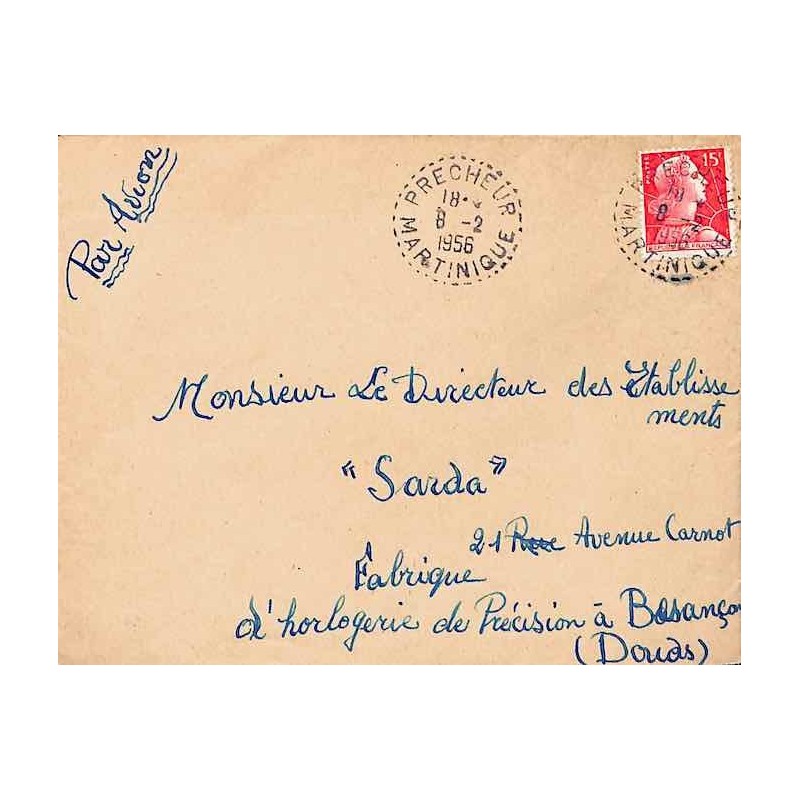 Par Avion
PRECHEUR
18 •
8 - 2
1956
MARTINIQUE
POSTES
15F
18
8 - 2
1956
MARTINIQUE
REPUBLIQUE FRANCAISE
Monsieur Le Directeur des Etablisse
ments
"Sarda"
21 Rue Avenue Carnot
Fabrique
d'horlogerie de Précision à Besançon
(Doubs)